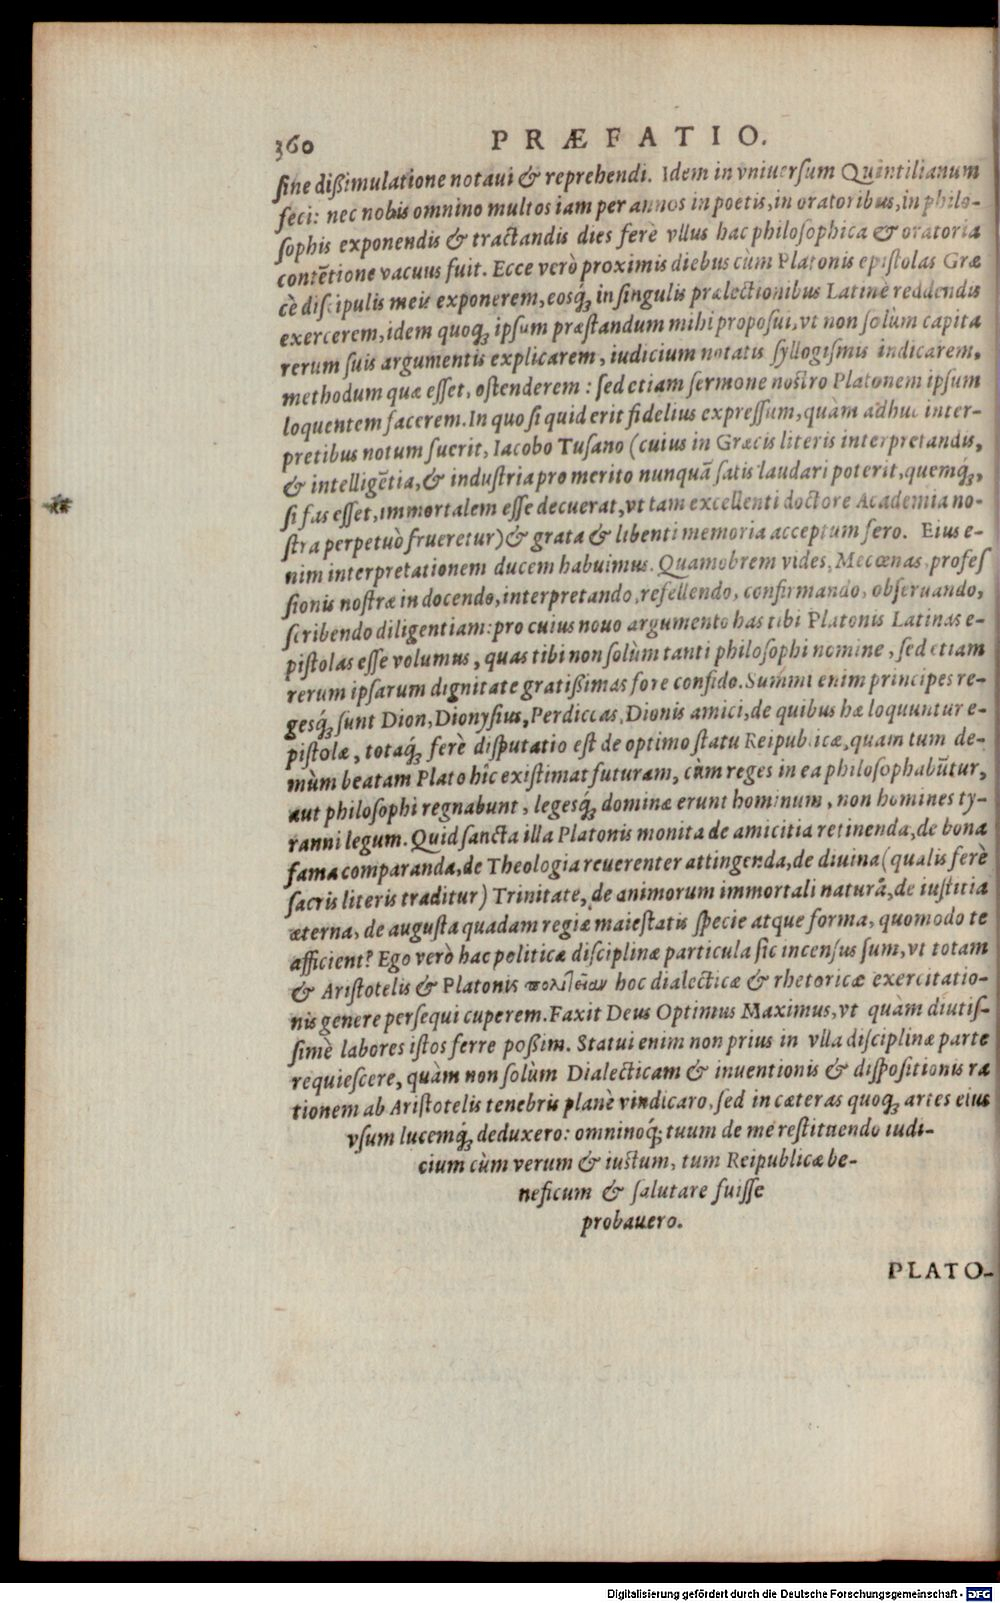 360 PRÆFATIO.
ſine dißimulatione notaui & reprehendi. Idem in vniuerſum Quintilianum
feci: nec nobis omnino multos iam per annos in poetis, in oratoribus, in philo-
ſophis exponendis & tractandis dies ferè vllus hac philoſophica & oratoria
contētione vacuus fuit. Ecce verò proximis diebus cùm Platonis epiſtolas Græ
cè diſcipulis meis exponerem, eosq́; in ſingulis prælectionibus Latinè reddendis
exercerem, idem quoq; ipſum præſtandum mihi propoſui, vt non ſolùm capita
rerum ſuis argumentis explicarem, iudicium notatis ſyllogiſmis indicarem,
methodum quæ eſſet, oſtenderem: ſed etiam ſermone noſtro Platonem ipſum
loquentem facerem. In quo ſi quid erit fidelius expreſſum, quàm adhuc inter-
pretibus notum fuerit, Iacobo Tuſano (cuius in Græcis literis interpretandis,
& intelligētia, & induſtria pro merito nunquā ſatis laudari poterit, quemq́;,
ſi fas eſſet, immortalem eſſe decuerat, vt tam excellenti doctore Academia no-
ſtra perpetuò frueretur) & grata & libenti memoria acceptum fero. Eius e-
nim interpretationem ducem habuimus. Quamobrem vides, Mecœnas, profeſ
ſionis noſtræ in docendo, interpretando, refellendo, confirmando, obſeruando,
ſcribendo diligentiam: pro cuius nouo argumento has tibi Platonis Latinas e-
piſtolas eſſe volumus, quas tibi non ſolùm tanti philoſophi nomine, ſed etiam
rerum ipſarum dignitate gratißimas fore confido. Summi enim principes re-
gesq́; ſunt Dion, Dionyſius, Perdiccas, Dionis amici, de quibus hæ loquuntur e-
piſtolæ, totaq́; ferè diſputatio eſt de optimo ſtatu Reipublicæ, quam tum de-
mùm beatam Plato hîc exiſtimat futuram, cùm reges in ea philoſophabūtur,
aut philoſophi regnabunt, legesq́; dominæ erunt hominum, non homines ty-
ranni legum. Quid ſancta illa Platonis monita de amicitia retinenda, de bona
fama comparanda, de Theologia reuerenter attingenda, de diuina (qualis ferè
ſacris literis traditur) Trinitate, de animorum immortali natura, de iuſtitia
æterna, de auguſta quadam regiæ maieſtatis ſpecie atque forma, quomodo te
afficient? Ego verò hac politicæ diſciplinæ particula ſic incenſus ſum, vt totam
& Ariſtotelis & Platonis πολιτείαν hoc dialecticæ & rhetoricæ exercitatio-
nis genere perſequi cuperem. Faxit Deus Optimus Maximus, vt quàm diutiſ-
ſimè labores iſtos ferre poßim. Statui enim non prius in vlla diſciplinæ parte
requieſcere, quàm non ſolùm Dialecticam & inuentionis & diſpoſitionis ra
tionem ab Ariſtotelis tenebris planè vindicaro, ſed in cæteras quoq; artes eius
vſum lucemq́; deduxero: omninoq́; tuum de me reſtituendo iudi-
cium cùm verum & iuſtum, tum Reipublicæ be-
neficum & ſalutare fuiſſe
probauero.
PLATO-
Digitalisierung gefördert durch die Deutsche Forschungsgemeinschaft - DFG